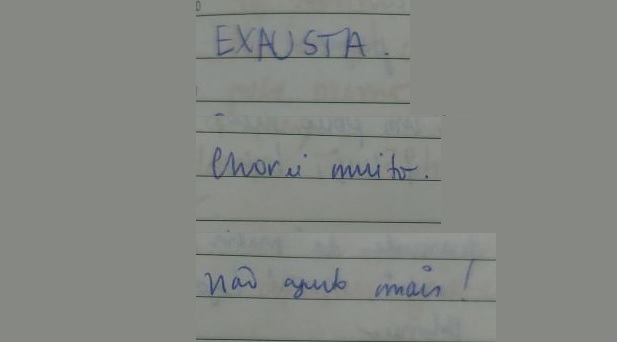 EXAUSTA.
Chorei muito.
Não aguento mais!